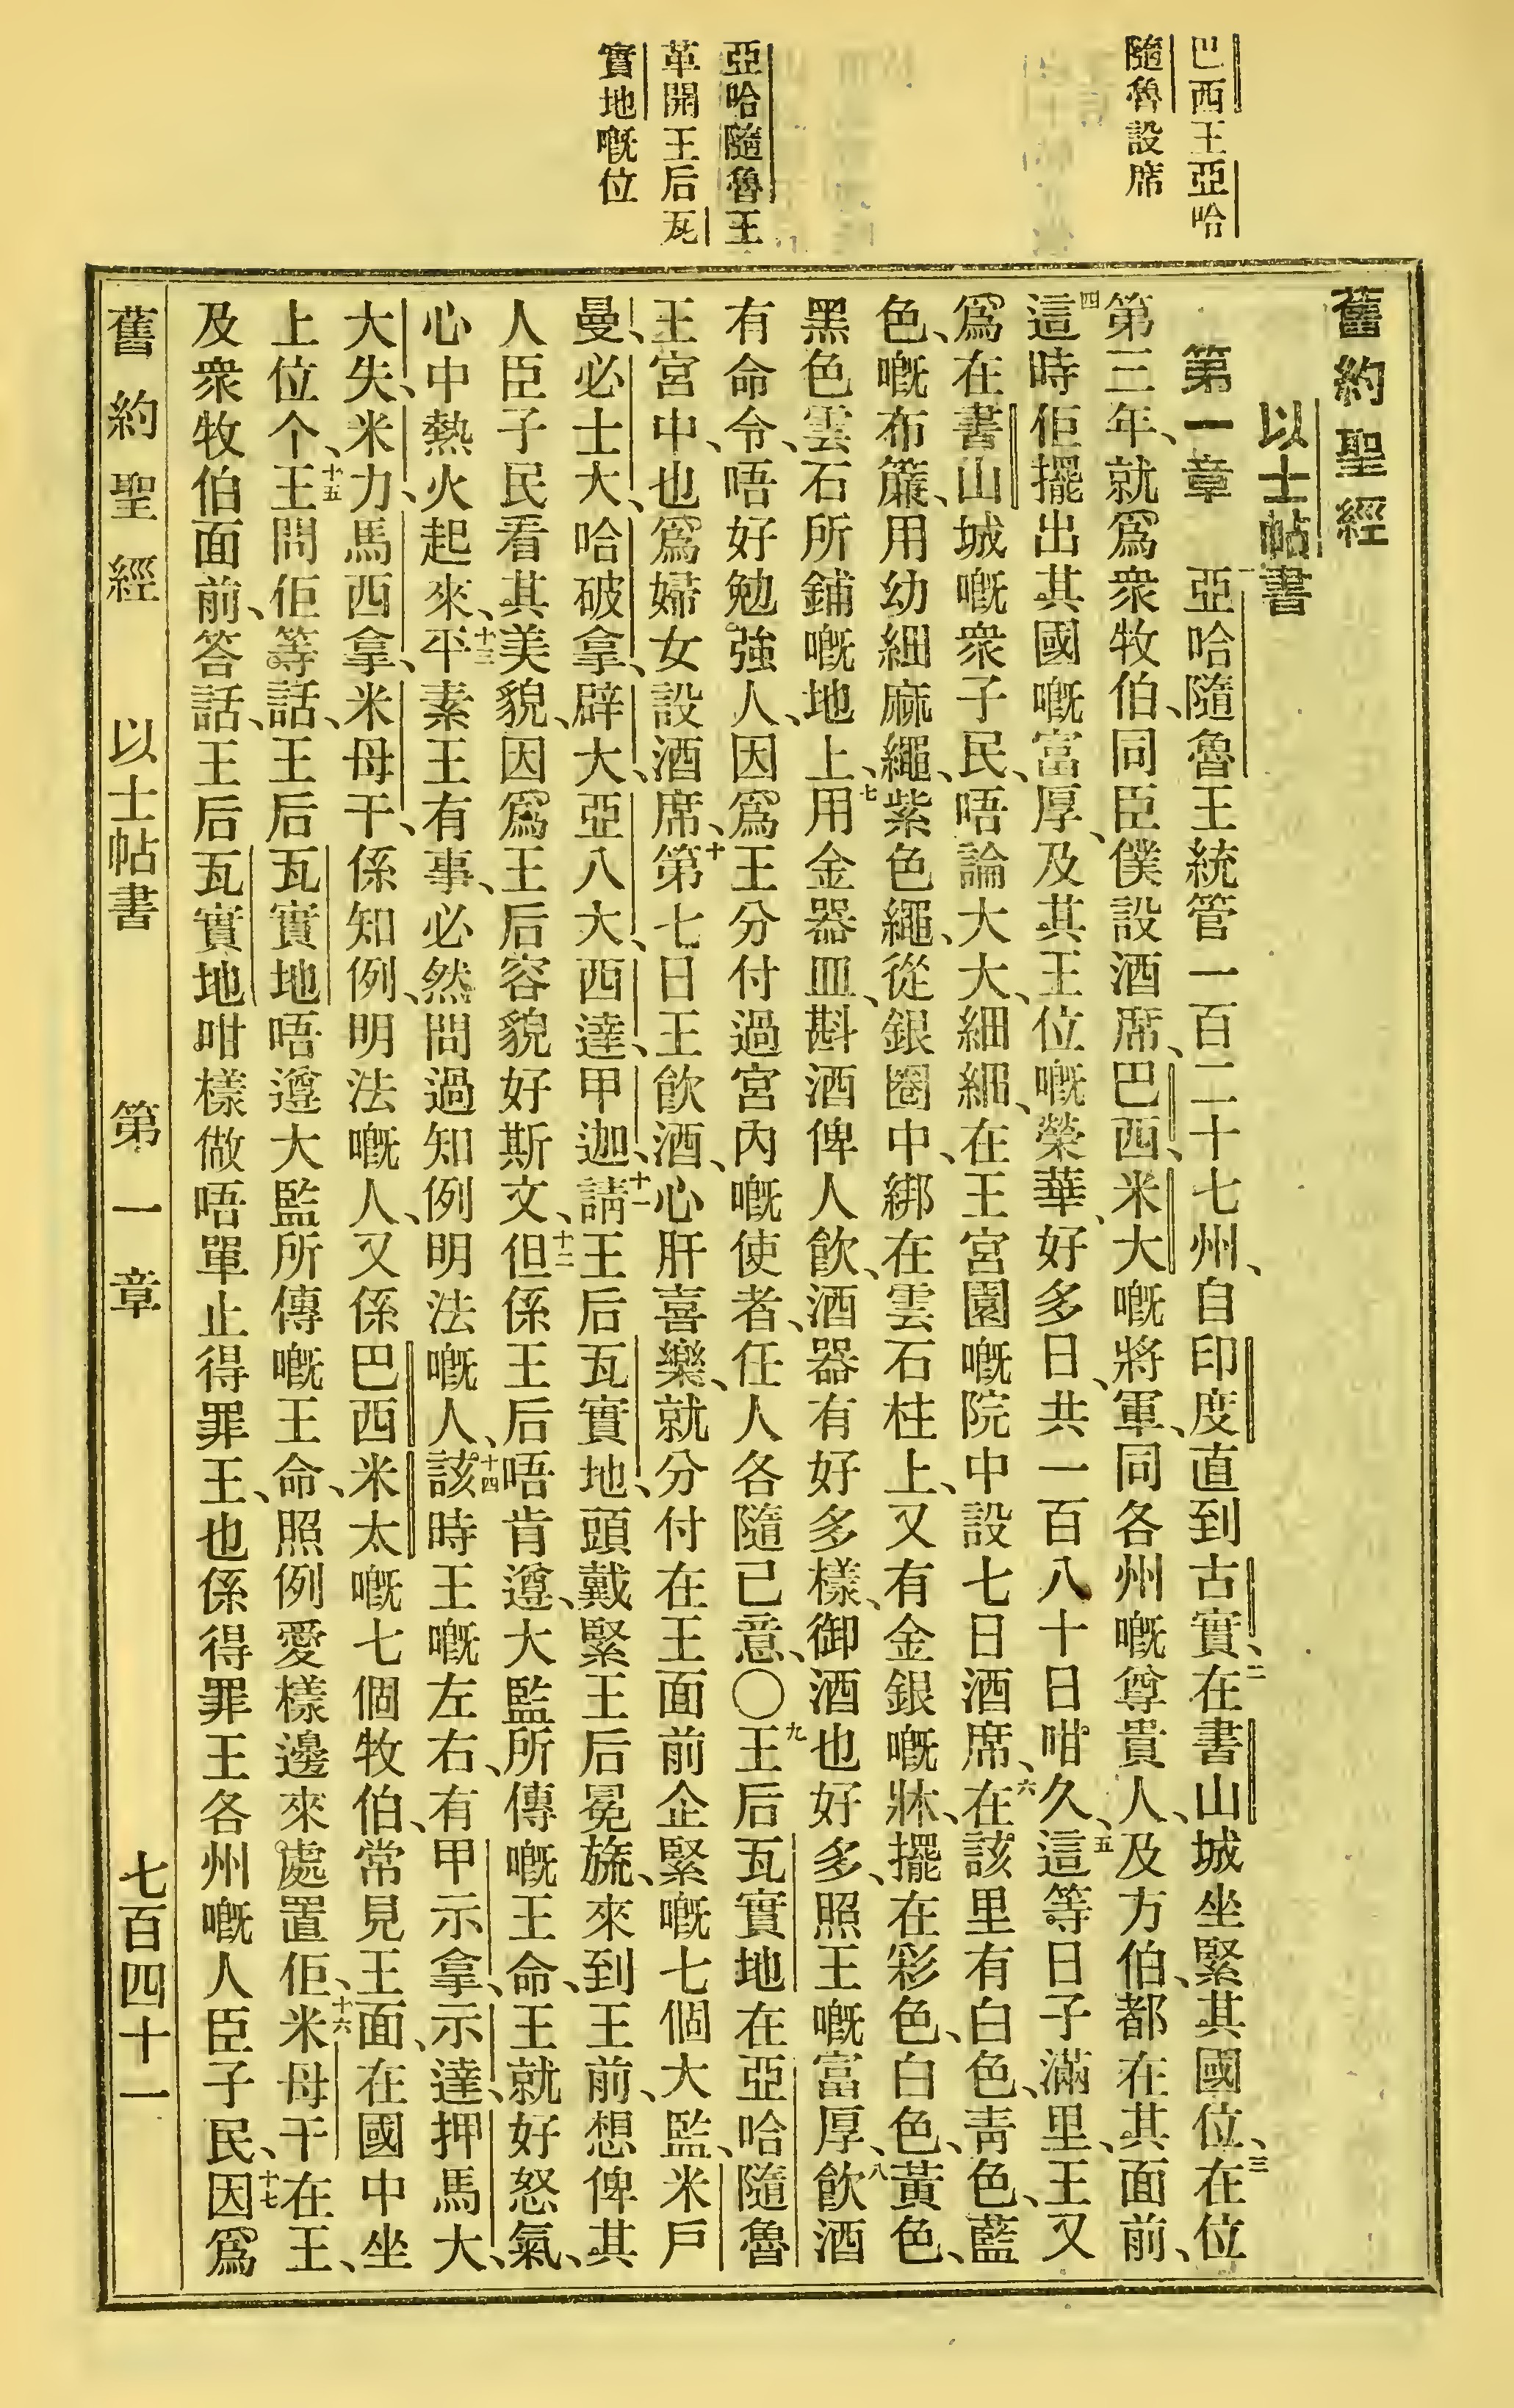 巴西王亞哈
隨魯設席
亞哈隨魯王
革開王后瓦
實地嘅位
舊約聖經
以士帖書
第一章 一亞哈隨魯王統管一百二十七州、自印度直到古實、二在書山城坐緊其國位、三在位
第三年、就爲衆牧伯、同臣僕設酒席、巴西、米大嘅將軍、同各州嘅尊貴人、及方伯、都在其面前、
四這時佢擺出其國嘅富厚、及其王位嘅榮華、好多日、共一百八十日咁久、五這等日子滿里、王又
爲在書山城嘅衆子民、唔論大大、細細、在王宮園嘅院中設七日酒席、六在該里有白色、靑色、藍
色、嘅布簾、用幼細麻繩、紫色繩、從銀圈中、綁在雲石柱上、又有金銀嘅牀、擺在彩色、白色、黃色、
黑色雲石所鋪嘅地上、七用金器皿、斟酒俾人飮、酒器有好多樣、御酒也好多、照王嘅富厚、八飮酒
有命令、唔好勉強人、因爲王分付過宮內嘅使者、任人各隨己意、〇九王后瓦實地在亞哈隨魯
王宮中、也爲婦女設酒席、十第七日王飮酒、心肝喜樂、就分付在王面前企緊嘅七個大監、米戶
曼、必士大、哈破拿、辟大、亞八大、西達、甲迦、十一請王后瓦實地、頭戴緊王后冕旒、來到王前、想俾其
人臣子民看其美貌、因爲王后容貌好斯文、十二但係王后唔肯遵、大監所傳嘅王命、王就好怒氣、
心中熱火起來、十三平素王有事、必然問過知例明法嘅人、十四該時王嘅左右、有甲示拿、示達、押馬大、
大失、米力、馬西拿、米母干、係知例、明法嘅人、又係巴西、米太嘅七個牧伯、常見王面、在國中坐
上位个、十五王問佢等話、王后瓦實地唔遵大監所傳嘅王命、照例愛樣邊來處置佢、十六米母干在王、
及衆牧伯面前、答話、王后瓦實地咁樣做唔單止得罪王、也係得罪王各州嘅人臣子民、十七因爲
舊約聖經 以士帖書 第一章 七百四十一